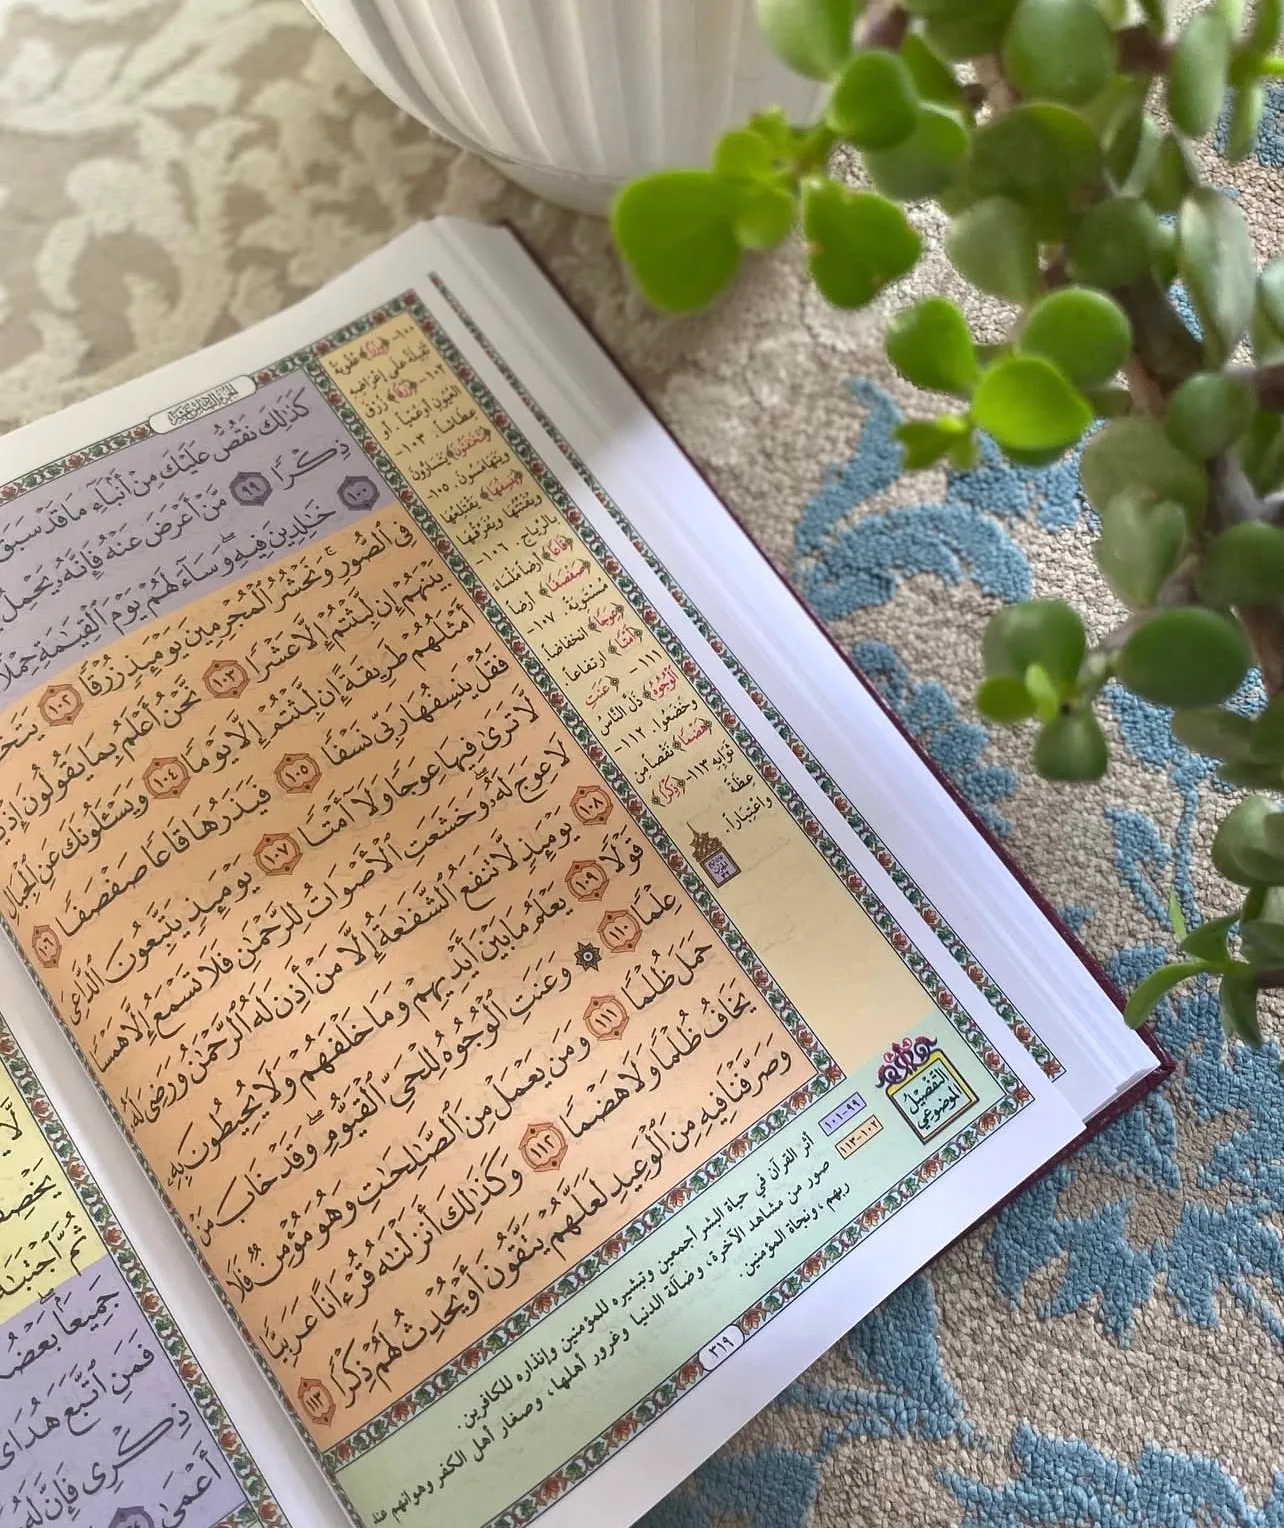 الجزء السادس عشر
كَذَٰلِكَ نَقُصُّ عَلَيْكَ مِنْ أَنۢبَآءِ مَا قَدْ سَبَقَ
ذِكْرًا ٩٩ مَّنْ أَعْرَضَ عَنْهُ فَإِنَّهُۥ يَحْمِلُ
١٠٠ خَٰلِدِينَ فِيهِ ۖ وَسَآءَ لَهُمْ يَوْمَ ٱلْقِيَٰمَةِ حِمْلًا
فِى ٱلصُّورِ ۚ وَنَحْشُرُ ٱلْمُجْرِمِينَ يَوْمَئِذٍ زُرْقًا ١٠٢
بَيْنَهُمْ إِن لَّبِثْتُمْ إِلَّا عَشْرًا ١٠٣ نَّحْنُ أَعْلَمُ بِمَا يَقُولُونَ إِذْ
أَمْثَلُهُمْ طَرِيقَةً إِن لَّبِثْتُمْ إِلَّا يَوْمًا ١٠٤ وَيَسْـَٔلُونَكَ عَنِ ٱلْجِبَالِ
فَقُلْ يَنسِفُهَا رَبِّى نَسْفًا ١٠٥ فَيَذَرُهَا قَاعًا صَفْصَفًا ١٠٦
لَّا تَرَىٰ فِيهَا عِوَجًا وَلَآ أَمْتًا ١٠٧ يَوْمَئِذٍ يَتَّبِعُونَ ٱلدَّاعِىَ
لَا عِوَجَ لَهُۥ ۖ وَخَشَعَتِ ٱلْأَصْوَاتُ لِلرَّحْمَٰنِ فَلَا تَسْمَعُ إِلَّا هَمْسًا
١٠٨ يَوْمَئِذٍ لَّا تَنفَعُ ٱلشَّفَٰعَةُ إِلَّا مَنْ أَذِنَ لَهُ ٱلرَّحْمَٰنُ وَرَضِىَ لَهُۥ
قَوْلًا ١٠٩ يَعْلَمُ مَا بَيْنَ أَيْدِيهِمْ وَمَا خَلْفَهُمْ وَلَا يُحِيطُونَ بِهِۦ
عِلْمًا ١١٠ ۞ وَعَنَتِ ٱلْوُجُوهُ لِلْحَىِّ ٱلْقَيُّومِ ۖ وَقَدْ خَابَ مَنْ
حَمَلَ ظُلْمًا ١١١ وَمَن يَعْمَلْ مِنَ ٱلصَّٰلِحَٰتِ وَهُوَ مُؤْمِنٌ فَلَا
يَخَافُ ظُلْمًا وَلَا هَضْمًا ١١٢ وَكَذَٰلِكَ أَنزَلْنَٰهُ قُرْءَانًا عَرَبِيًّا
وَصَرَّفْنَا فِيهِ مِنَ ٱلْوَعِيدِ لَعَلَّهُمْ يَتَّقُونَ أَوْ يُحْدِثُ لَهُمْ ذِكْرًا ١١٣
١٠٠- ﴿وِزْرًا﴾ عقوبة
ثقيلة على إعراضه
١٠٢- ﴿زُرْقًا﴾ زُرْقَ
العيون أو عُمْياً، أو
عطاشاً. ١٠٣-
﴿يَتَخَٰفَتُونَ﴾ يتسارّون
ويتهامسون. ١٠٥-
﴿يَنسِفُهَا﴾ يقتلعها
ويفتتها ويفرّقها
بالرياح. ١٠٦-
﴿قَاعًا﴾ أرضاً ملساء
﴿صَفْصَفًا﴾ أرضاً
مستوية. ١٠٧-
﴿عِوَجًا﴾ انخفاضاً.
﴿أَمْتًا﴾ ارتفاعاً.
١١١- ﴿عَنَتِ
ٱلْوُجُوهُ﴾ ذلّ الناس
وخضعوا. ١١٢-
﴿هَضْمًا﴾ نقصاً من
ثوابه ١١٣- ﴿ذِكْرًا﴾
عظةً
واعتباراً.
التفصيل
الموضوعي
٩٩-١٠١ أثر القرآن في حياة البشر أجمعين وتبشيره للمؤمنين وإنذاره للكافرين.
١٠٢-١١٣ صور من مشاهد الآخرة، وضآلة الدنيا وغرور أهلها، وصغار أهل الكفر وهوانهم عند
ربهم، ونجاة المؤمنين.
٣١٩
ثُمَّ ٱجْتَبَٰهُ
جَمِيعًۢا ۖ بَعْضُ
فَمَنِ ٱتَّبَعَ هُدَاىَ
ذِكْرِى فَإِنَّ لَهُۥ
أَعْمَىٰ